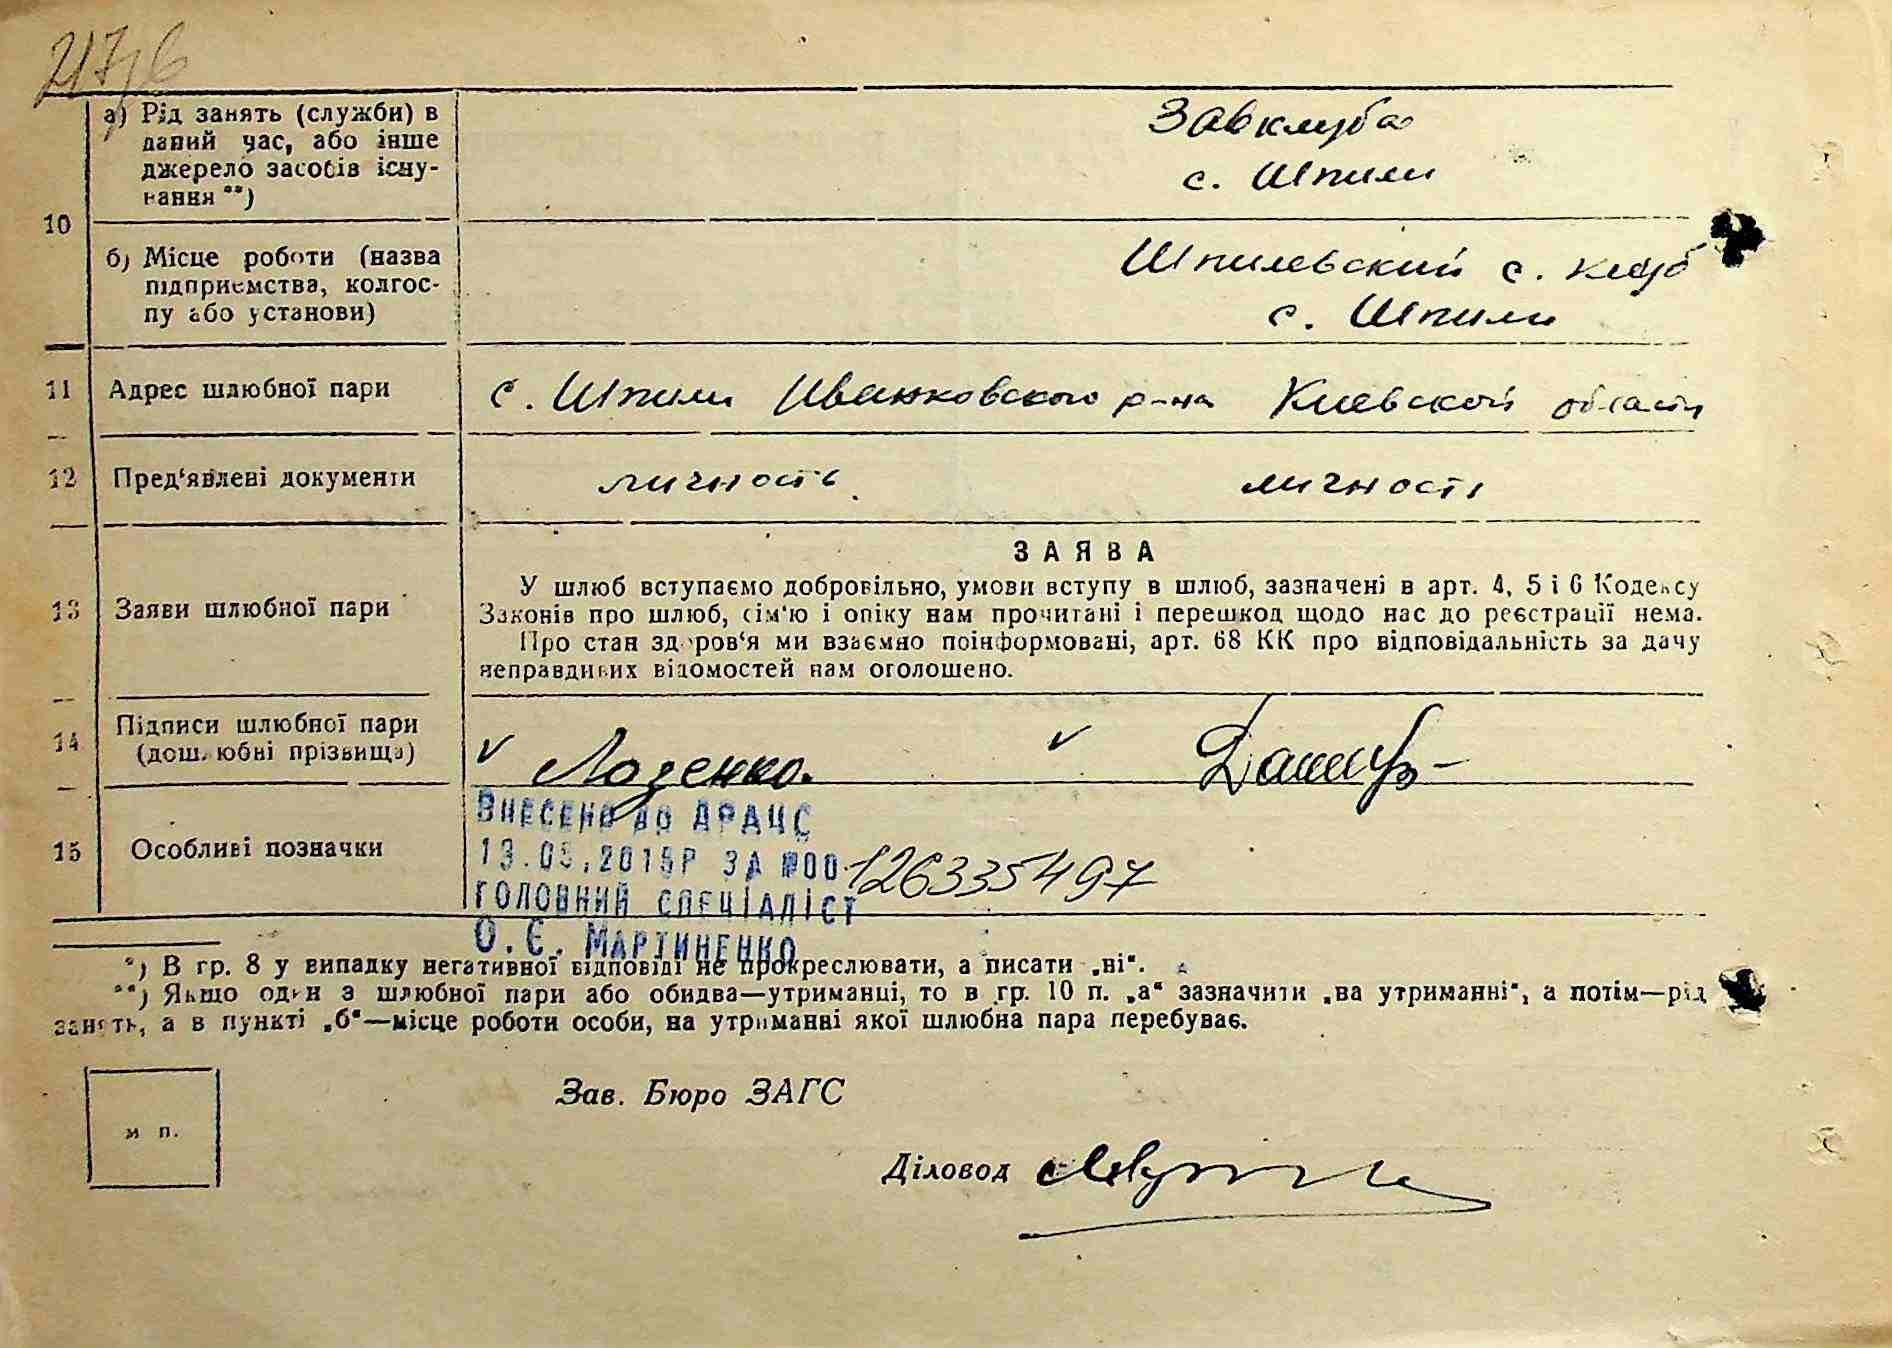 а) Рід занять (служби) в
даний час, або інше
джерело засобів існу-
вання **)
Завклуба
с. Шпили
10
б) Місце роботи (назва
підприємства, колгос-
пу або установи)
Шпилевский с. клуб
с. Шпили
11 Адрес шлюбної пари с. Шпили Иванковского р-на Киевской области
12 Пред'явлені документи личность личность
ЗАЯВА
13 Заяви шлюбної пари
У шлюб вступаємо добровільно, умови вступу в шлюб, зазначені в арт. 4, 5 і 6 Кодексу
Законів про шлюб, сім'ю і опіку нам прочитані і перешкод щодо нас до реєстрації нема.
Про стан здоров'я ми взаємно поінформовані, арт. 68 КК про відповідальність за дачу
неправдивих відомостей нам оголошено.
14 Підписи шлюбної пари
(дошлюбні прізвища)
v Лозенко v
15 Особливі позначки
ВНЕСЕНО ДО ДРАЦС
13.05.2015Р ЗА №00 126335497
ГОЛОВНИЙ СПЕЦІАЛІСТ
О.Є. МАРТИНЕНКО
*) В гр. 8 у випадку негативної відповіді не прокреслювати, а писати „ні".
**) Якщо один з шлюбної пари або обидва—утриманці, то в гр. 10 п. „а" зазначити „на утриманні", а потім—рід
занять, а в пункті „б"—місце роботи особи, на утриманні якої шлюбна пара перебуває.
Зав. Бюро ЗАГС
м п.
Діловод